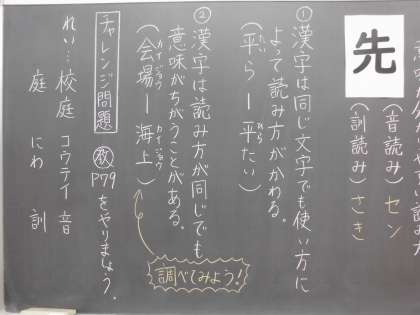 先
（音読み）セン
（訓読み）さき
①漢字は同じ文字でも使い方に
よって読み方がかわる。
（平らー平たい）
たい
ひら
②漢字は読み方が同じでも
意味がちがうことがある。
（会場ー海上）
カイジョウ
カイジョウ
調べてみよう！
チャレンジ問題
教P79をやりましょう。
れい…校庭 コウテイ 音
庭 にわ 訓